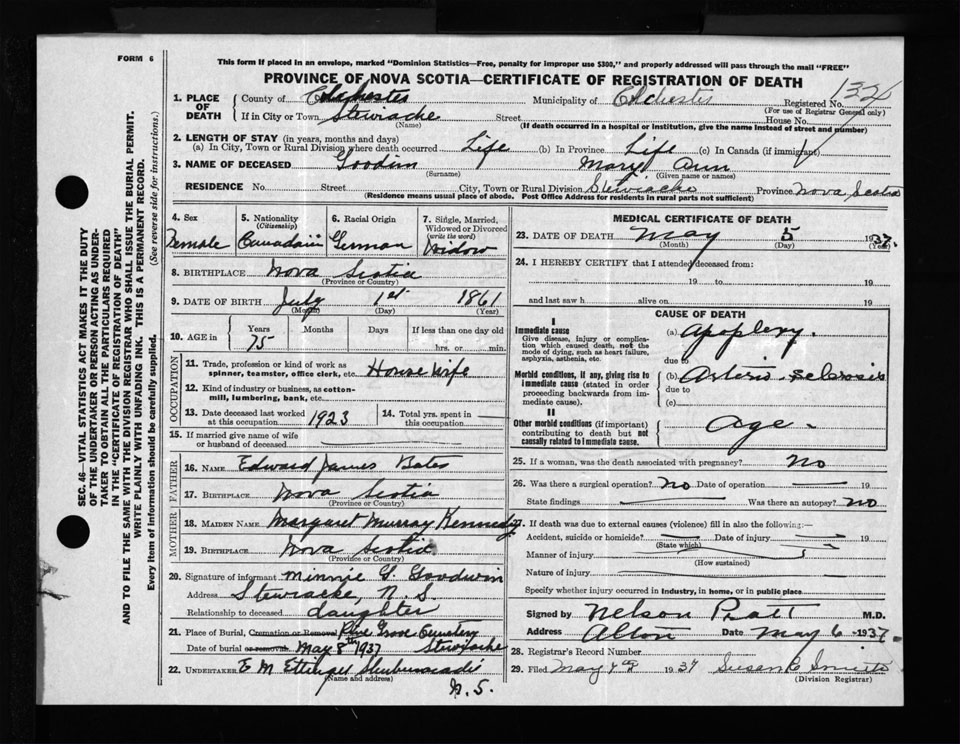 FORM 6
This form if placed in an envelope, marked "Dominion Statistics—Free, penalty for improper use $300," and properly addressed will pass through the mail "FREE"
PROVINCE OF NOVA SCOTIA—CERTIFICATE OF REGISTRATION OF DEATH
1. PLACE OF DEATH
County of Colchester Municipality of Colchester Registered No. 132
(For use of Registrar General only)
If in City or Town Stewiacke Street House No.
(Name) (If death occurred in a hospital or institution, give the name instead of street and number)
2. LENGTH OF STAY (in years, months and days)
(a) In City, Town or Rural Division where death occurred Life (b) In Province Life (c) In Canada (if immigrant)
3. NAME OF DECEASED Goodwin Mary Ann
(Surname) (Given name or names)
RESIDENCE No. Street City, Town or Rural Division Stewiacke Province Nova Scotia
(Residence means usual place of abode. Post Office Address for residents in rural parts not sufficient)
4. Sex
Female
5. Nationality
(Citizenship)
Canadian
6. Racial Origin
German
7. Single, Married, Widowed or Divorced
(write the word)
Widow
8. BIRTHPLACE Nova Scotia
(Province or Country)
9. DATE OF BIRTH July 1st 1861
(Month) (Day) (Year)
10. AGE in
Years Months Days If less than one day old
75 hrs. or min.
OCCUPATION
11. Trade, profession or kind of work as spinner, teamster, office clerk, etc. Housewife
12. Kind of industry or business, as cotton-mill, lumbering, bank, etc.
13. Date deceased last worked at this occupation 1923
14. Total yrs. spent in this occupation
15. If married give name of wife or husband of deceased
FATHER
16. NAME Edward James Bates
17. BIRTHPLACE Nova Scotia
(Province or Country)
MOTHER
18. MAIDEN NAME Margaret Murray Kennedy
19. BIRTHPLACE Nova Scotia
(Province or Country)
20. Signature of informant Minnie G. Goodwin
Address Stewiacke, N. S.
Relationship to deceased daughter
21. Place of Burial, Cremation or Removal Pine Grove Cemetery
Stewiacke
Date of burial or removal May 8th 1937
22. UNDERTAKER E M Ettinger Shubenacadie
(Name and address)
N. S.
MEDICAL CERTIFICATE OF DEATH
23. DATE OF DEATH May 5 1937.
(Month) (Day) (Year)
24. I HEREBY CERTIFY that I attended deceased from:
19 to 19
and last saw h alive on 19
CAUSE OF DEATH
I
Immediate cause
Give disease, injury or complication which caused death, not the mode of dying, such as heart failure, asphyxia, asthenia, etc.
(a) Apoplexy.
due to
Morbid conditions, if any, giving rise to immediate cause (stated in order proceeding backwards from immediate cause).
(b) Arterio-sclerosis
due to
(c)
II
Other morbid conditions (if important) contributing to death but not causally related to immediate cause.
Age.
25. If a woman, was the death associated with pregnancy? No
26. Was there a surgical operation? No Date of operation 19
State findings Was there an autopsy? No
27. If death was due to external causes (violence) fill in also the following:—
Accident, suicide or homicide? Date of injury 19
(State which)
Manner of injury
(How sustained)
Nature of injury
Specify whether injury occurred in Industry, in home, or in public place
Signed by Nelson Pratt M.D.
Address Alton Date May 6 1937.
28. Registrar's Record Number
29. Filed May 1937 Susan
(Division Registrar)
SEC. 46—VITAL STATISTICS ACT MAKES IT THE DUTY
OF THE UNDERTAKER OR PERSON ACTING AS UNDER-
TAKER TO OBTAIN ALL THE PARTICULARS REQUIRED
IN THE "CERTIFICATE OF REGISTRATION OF DEATH"
AND TO FILE THE SAME WITH THE DIVISION REGISTRAR WHO SHALL ISSUE THE BURIAL PERMIT.
WRITE PLAINLY WITH UNFADING INK. THIS IS A PERMANENT RECORD.
Every item of information should be carefully supplied. (See reverse side for instructions.)